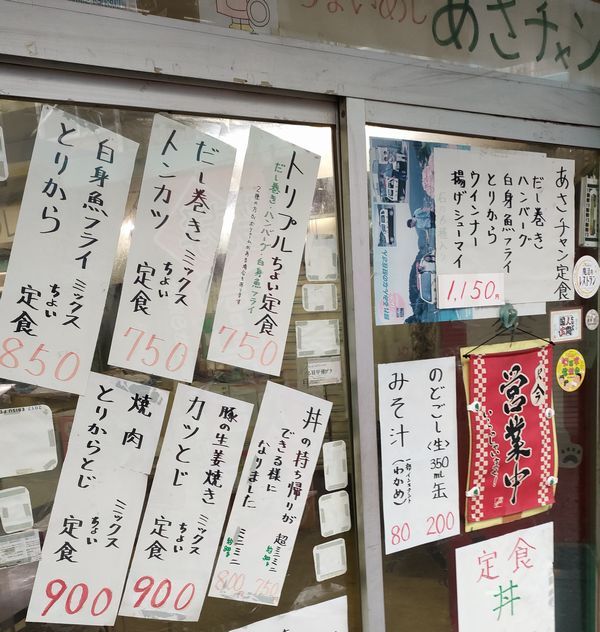 ちょいめし
あさチャン
白身魚フライ
とりから
ミックス
ちょい
定食
850
だし巻き
トンカツ
ミックス
ちょい
定食
750
トリプルちょい定食
だし巻き・ハンバーグ・白身魚フライ
750
あさチャン定食
だし巻き
ハンバーグ
白身魚フライ
とりから
ウインナー
揚げシューマイ
1,150円
焼肉
とりからとじ
ミックス
ちょい
定食
900
豚の生姜焼き
カツとじ
ミックス
ちょい
定食
900
丼の持ち帰りが
できる様に
なりました
超ミニミニ
ミニミニ
750
800
のどごし〈生〉350ml缶
200
みそ汁
(わかめ)
80
只今
営業中
定食
丼